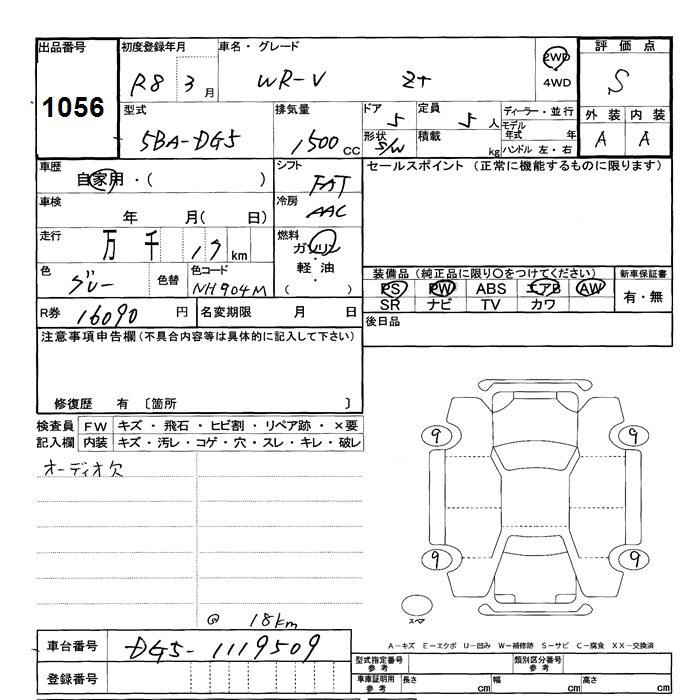 出品番号 初度登録年月 車名・グレード 2WD 評価点
1056 R8 3月 WR-V Z+ 4WD S
型式 排気量 ドア 5 定員 5人 ディーラー・並行 外装 内装
5BA-DG5 1500cc 形状 S/W 積載 kg モデル年式 年 ハンドル 左・右 A A
車歴 自家用・( ) シフト FAT セールスポイント (正常に機能するものに限ります)
車検 年 月( 日) 冷房 AAC
走行 万 千 17 km 燃料 ガソリン・軽油 ( )
色 グレー 色替 色コード NH904M
装備品 (純正品に限り〇をつけてください) 新車保証書
PS PW ABS エアB AW 有・無
SR ナビ TV カワ
R券 16090 円 名変期限 月 日 後日品
注意事項申告欄 (不具合内容等は具体的に記入して下さい)
修復歴 有 〔箇所 〕
検査員 FW キズ・飛石・ヒビ割・リペア跡・×要
記入欄 内装 キズ・汚レ・コゲ・穴・スレ・キレ・破レ
オーディオ欠
9 9
9 9
スペア
@ 18km
A－キズ E－エクボ U－凹み W－補修跡 S－サビ C－腐食 XX－交換済
車台番号 DG5-1119509
登録番号
型式指定番号 参考 類別区分番号 参考
車庫証明用 参考 長さ cm 幅 cm 高さ cm